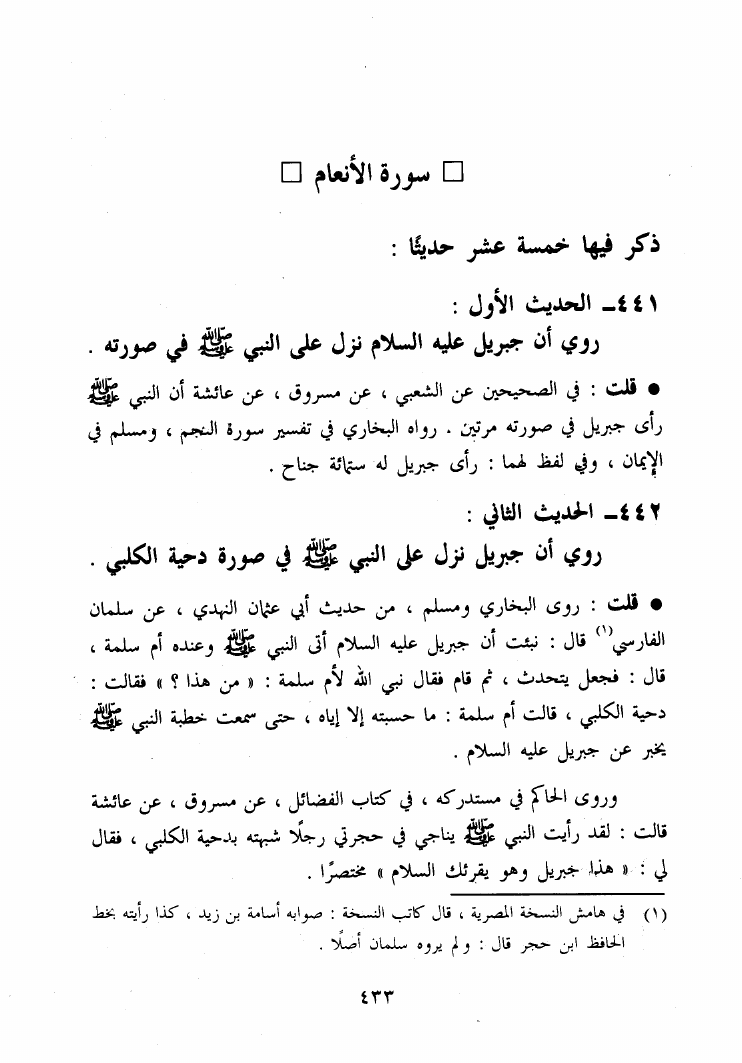 □ سورة الأنعام □
ذكر فيها خمسة عشر حديثًا :
٤٤١ـ الحديث الأول :
روي أن جبريل عليه السلام نزل على النبي ﷺ في صورته .
● قلت : في الصحيحين عن الشعبي ، عن مسروق ، عن عائشة أن النبي ﷺ
رأى جبريل في صورته مرتين . رواه البخاري في تفسير سورة النجم ، ومسلم في
الإيمان ، وفي لفظ لهما : رأى جبريل له ستمائة جناح .
٤٤٢ـ الحديث الثاني :
روي أن جبريل نزل على النبي ﷺ في صورة دحية الكلبي .
● قلت : روى البخاري ومسلم ، من حديث أبي عثمان النهدي ، عن سلمان
الفارسي(١) قال : نبئت أن جبريل عليه السلام أتى النبي ﷺ وعنده أم سلمة ،
قال : فجعل يتحدث ، ثم قام فقال نبي الله لأم سلمة : « من هذا ؟ » فقالت :
دحية الكلبي ، قالت أم سلمة : ما حسبته إلا إياه ، حتى سمعت خطبة النبي ﷺ
يخبر عن جبريل عليه السلام .
وروى الحاكم في مستدركه ، في كتاب الفضائل ، عن مسروق ، عن عائشة
قالت : لقد رأيت النبي ﷺ يناجي في حجرتي رجلًا شبهته بدحية الكلبي ، فقال
لي : « هذا جبريل وهو يقرئك السلام » مختصرًا .
(١) في هامش النسخة المصرية ، قال كاتب النسخة : صوابه أسامة بن زيد ، كذا رأيته بخط
الحافظ ابن حجر قال : ولم يروه سلمان أصلًا .
٤٣٣